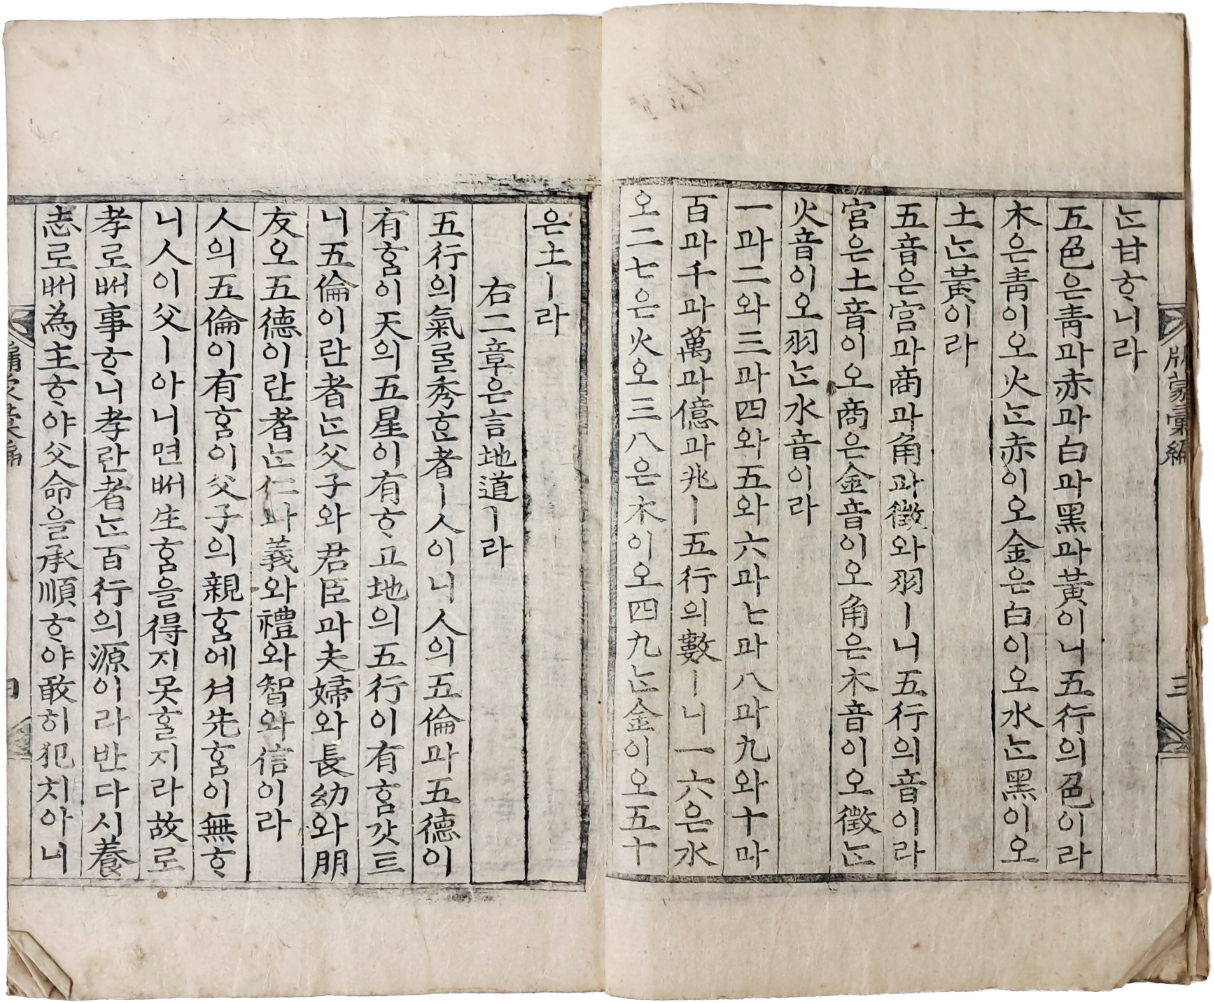 牖蒙彙編
三
ᄂᆞᆫ甘ᄒᆞ니라
五色은靑과赤과白과黑과黃이니五行의色이라
木은靑이오火ᄂᆞᆫ赤이오金은白이오水ᄂᆞᆫ黑이오
土ᄂᆞᆫ黃이라
五音은宮과商과角과徵와羽ㅣ니五行의音이라
宮은土音이오商은金音이오角은木音이오徵ᄂᆞᆫ
火音이오羽ᄂᆞᆫ水音이라
一과二와三과四와五와六과七과八과九와十과
百과千과萬과億과兆ㅣ五行의數ㅣ니一六은水
오二七은火오三八은木이오四九ᄂᆞᆫ金이오五十
은土ㅣ라
右二章은言地道ㅣ라
五行의氣로秀ᄒᆞᆫ者ㅣ人이니人의五倫과五德이
有홈이天의五星이有ᄒᆞ고地의五行이有홈갓트
니五倫이란者ᄂᆞᆫ父子와君臣과夫婦와長幼와朋
友오五德이란者ᄂᆞᆫ仁과義와禮와智와信이라
人의五倫이有홈이父子의親홈에셔先홈이無ᄒᆞ
니人이父ㅣ아니면ᄡᅥ生홈을得지못ᄒᆞᆯ지라故로
孝로ᄡᅥ事ᄒᆞ니孝란者ᄂᆞᆫ百行의源이라반다시養
志로ᄡᅥ為主ᄒᆞ야父命을承順ᄒᆞ야敢히犯치아니